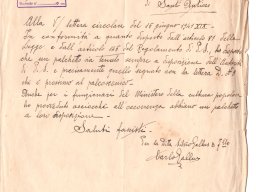 di Santi Quatuor
Alla V/ lettera circolare del 15 giugno 1941 XIX -
In conformità a quanto disposto dall'articolo 61 della
Legge e dall'articolo 105 del Regolamento di P.S., ho disposto
che un palchetto sia tenuto sempre a disposizione dell'Autorità
di P.S. e precisamente quello segnato con la lettera D. N° 9
che è prossimo al palcoscenico.
Anche per i funzionari del Ministero della cultura popolare
ho provveduto acciocché all'occorrenza abbiano un palchetto
a loro disposizione.
Saluti fascisti.
Per la Ditta
Carlo Gallino